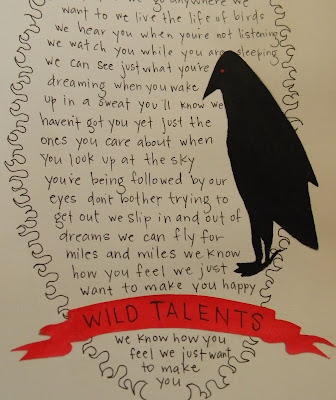 we go anywhere we
want to we live the life of birds
we hear you when you're not listening
we watch you while you are sleeping
we can see just what you're
dreaming when you wake
up in a sweat you'll know we
haven't got you yet just the
ones you care about when
you look up at the sky
you're being followed by our
eyes don't bother trying to
get out we slip in and out of
dreams we can fly for
miles and miles we know
how you feel we just
want to make you happy
WILD TALENTS
we know how you
feel we just want
to make
you